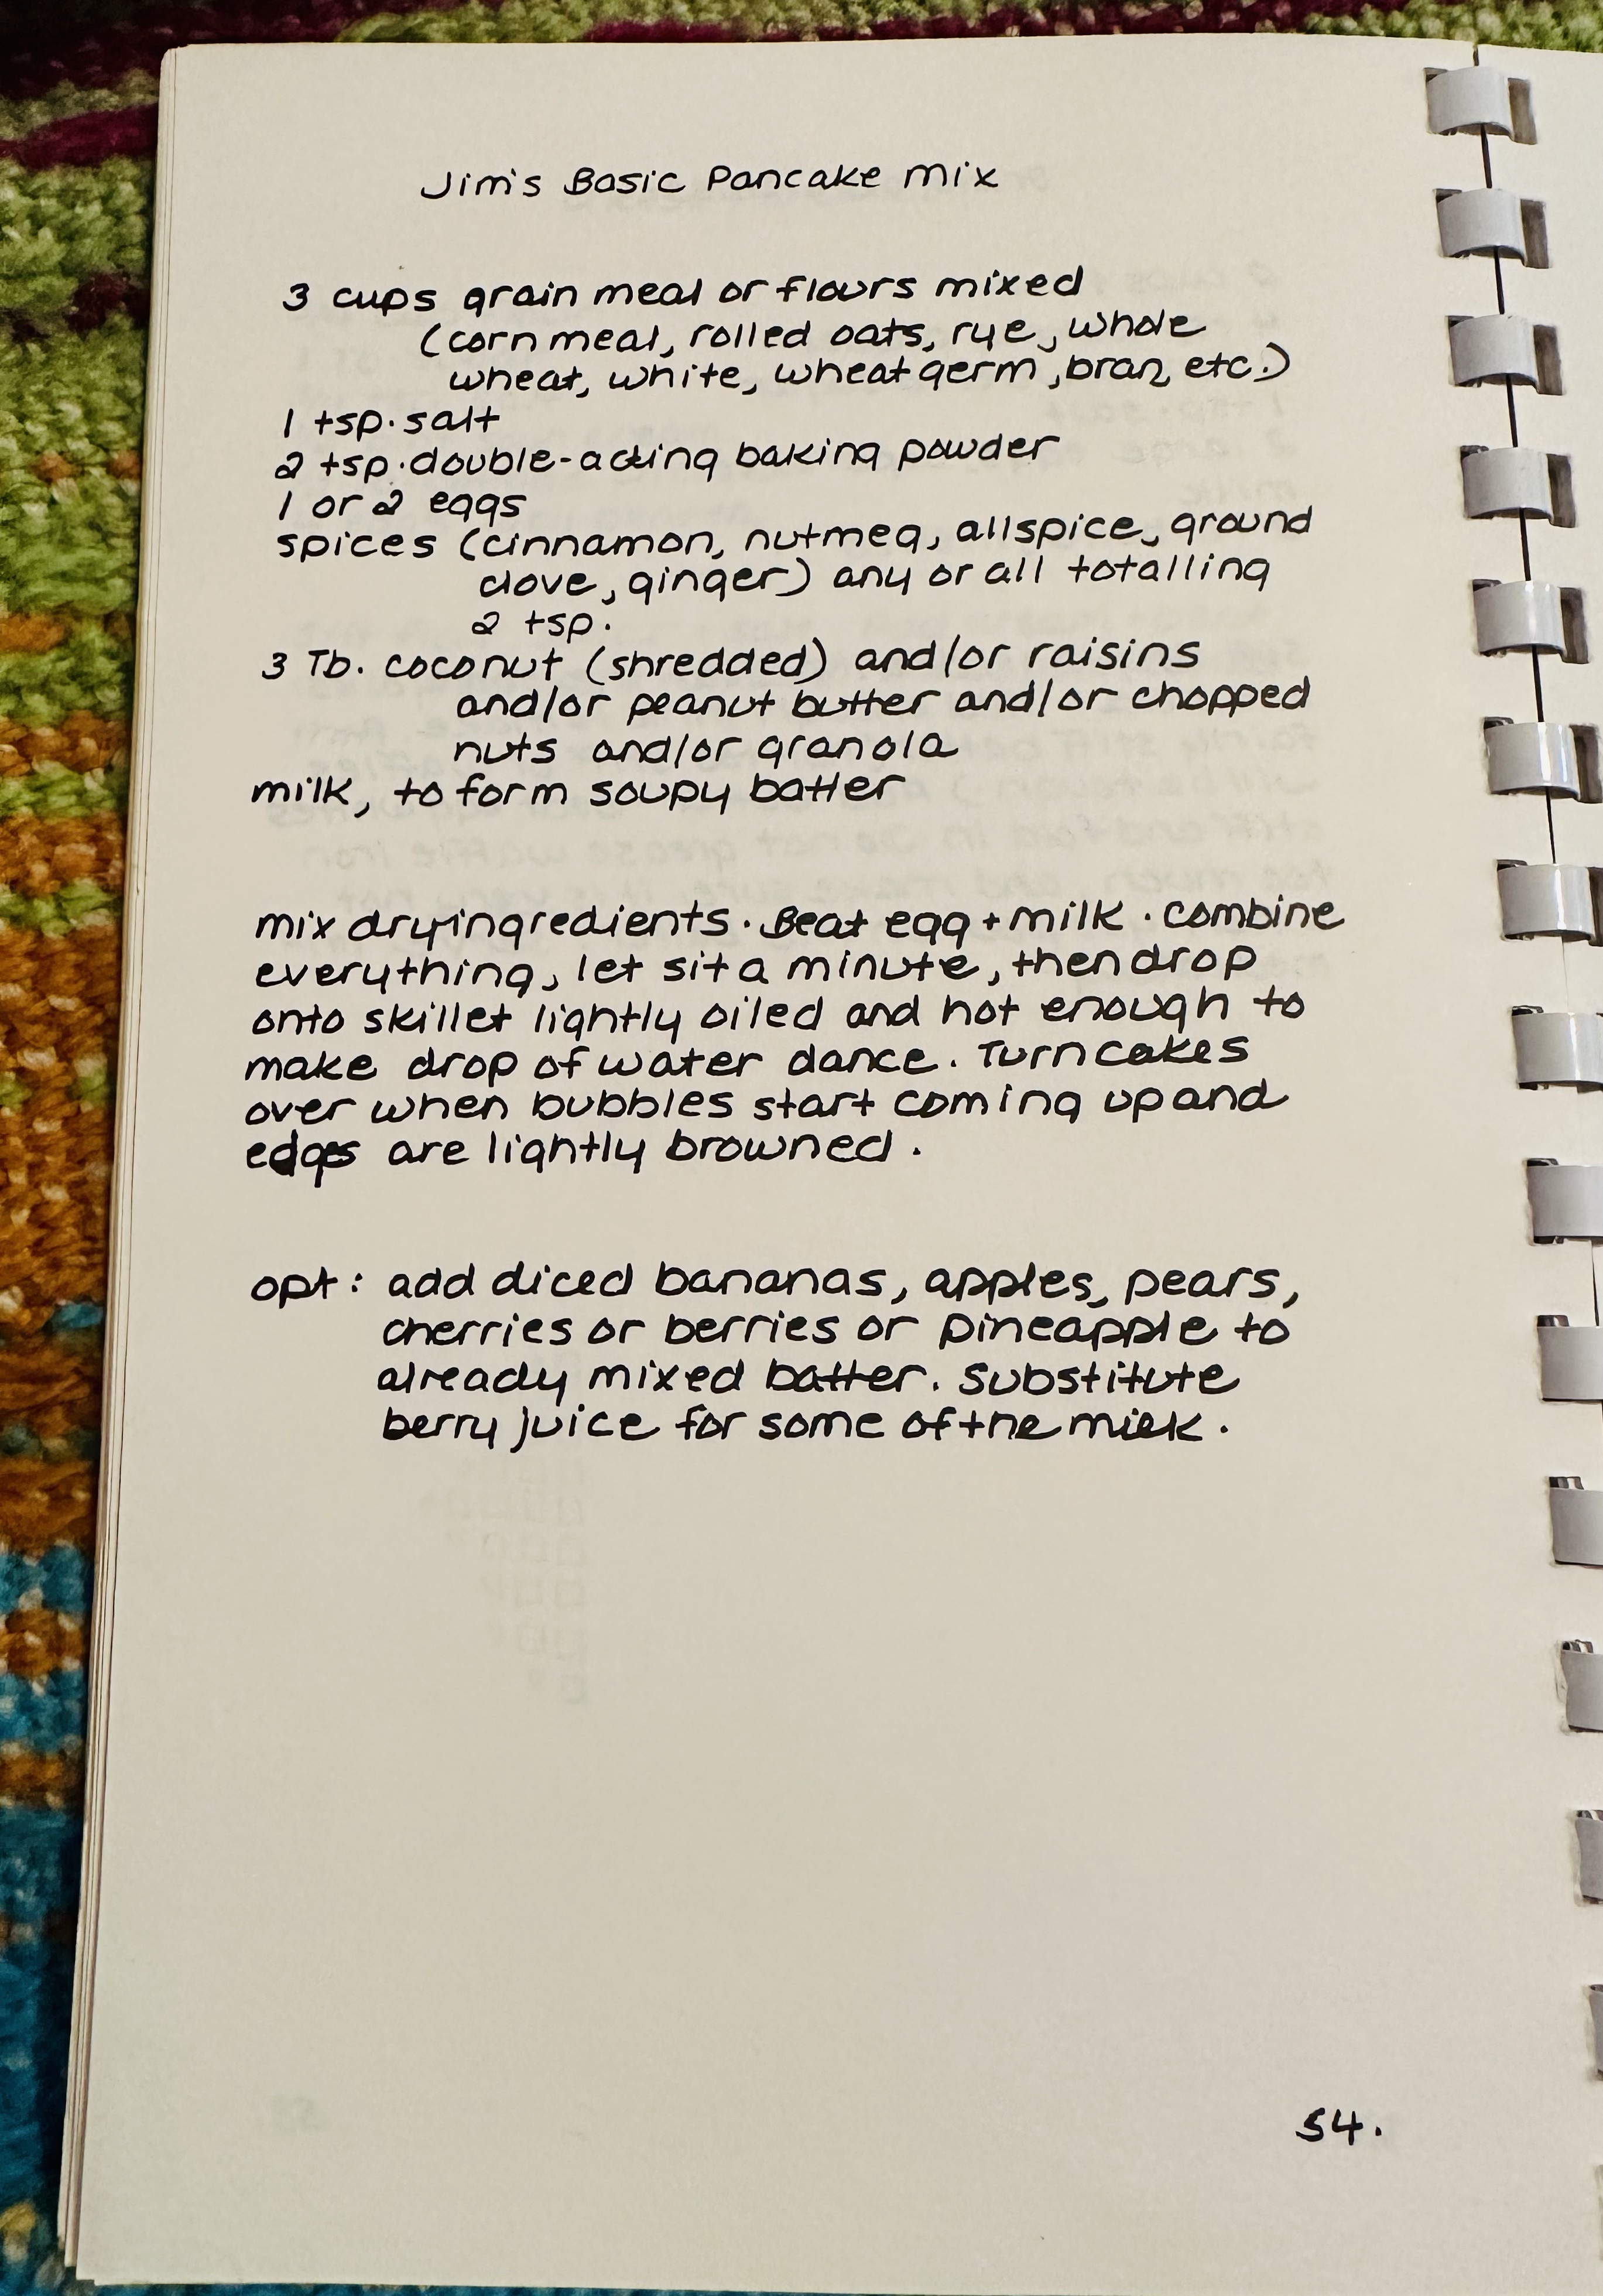 Jim's Basic Pancake Mix
3 cups grain meal or flours mixed
(corn meal, rolled oats, rye, whole
wheat, white, wheat germ, bran, etc.)
1 tsp. salt
2 tsp. double-acting baking powder
1 or 2 eggs
spices (cinnamon, nutmeg, allspice, ground
clove, ginger) any or all totalling
2 tsp.
3 Tb. coconut (shredded) and/or raisins
and/or peanut butter and/or chopped
nuts and/or granola
milk, to form soupy batter
mix dry ingredients. Beat egg + milk. combine
everything, let sit a minute, then drop
onto skillet lightly oiled and hot enough to
make drop of water dance. Turn cakes
over when bubbles start coming up and
edges are lightly browned.
opt: add diced bananas, apples, pears,
cherries or berries or pineapple to
already mixed batter. Substitute
berry juice for some of the milk.
54.